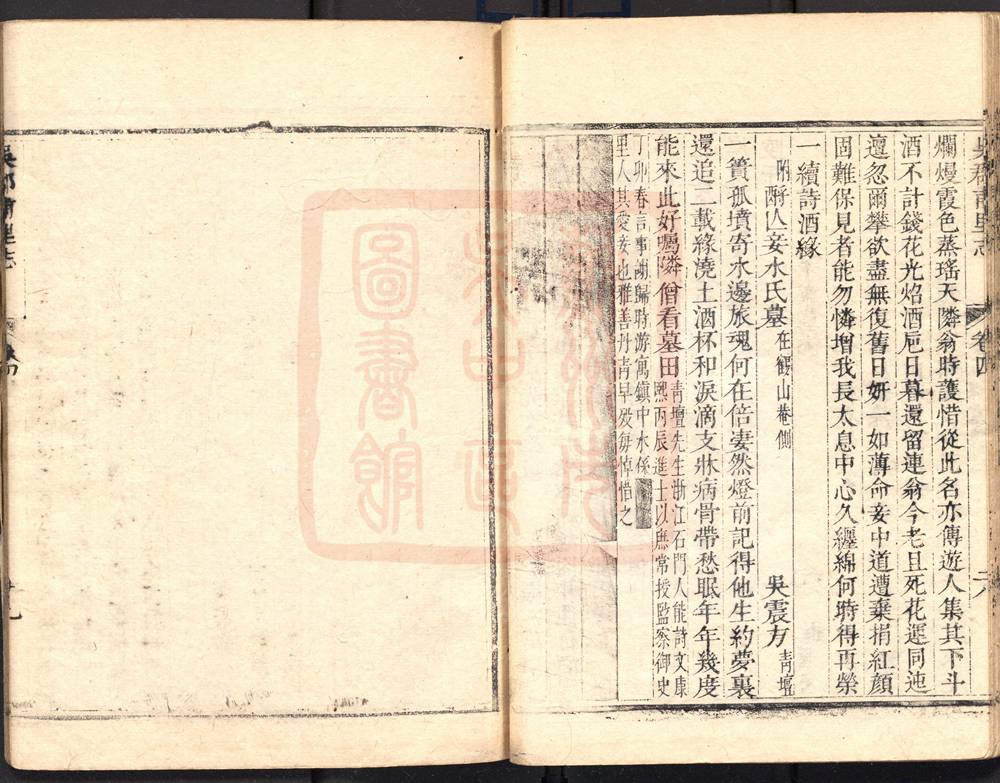 吳郡甫里志 卷四 二八
爛熳霞色蒸瑤天隣翁時護惜從此名亦傳遊人集其下斗
酒不計錢花光焰酒巵日暮還留連翁今老且死花運同迍
邅忽爾攀欲盡無復舊日妍一如薄命妾中道遭棄捐紅顏
固難保見者能勿憐增我長太息中心久纏綿何時得再榮
一續詩酒緣
附酹亡妾水氏墓 在鶴山菴側 吳震方 青壇
一簣孤墳寄水邊旅魂何在倍凄然燈前記得他生約夢裏
還追二載緣澆土酒杯和淚滴支牀病骨帶愁眠年年幾度
能來此好囑隣僧看墓田
青壇先生浙江石門人能詩文康
熙丙辰進士以庶常授監察御史
丁卯春言事謝歸時游寓鎮中水係
里人其愛妾也雅善丹青早歿每悼惜之
吳郡甫里志
圖書館